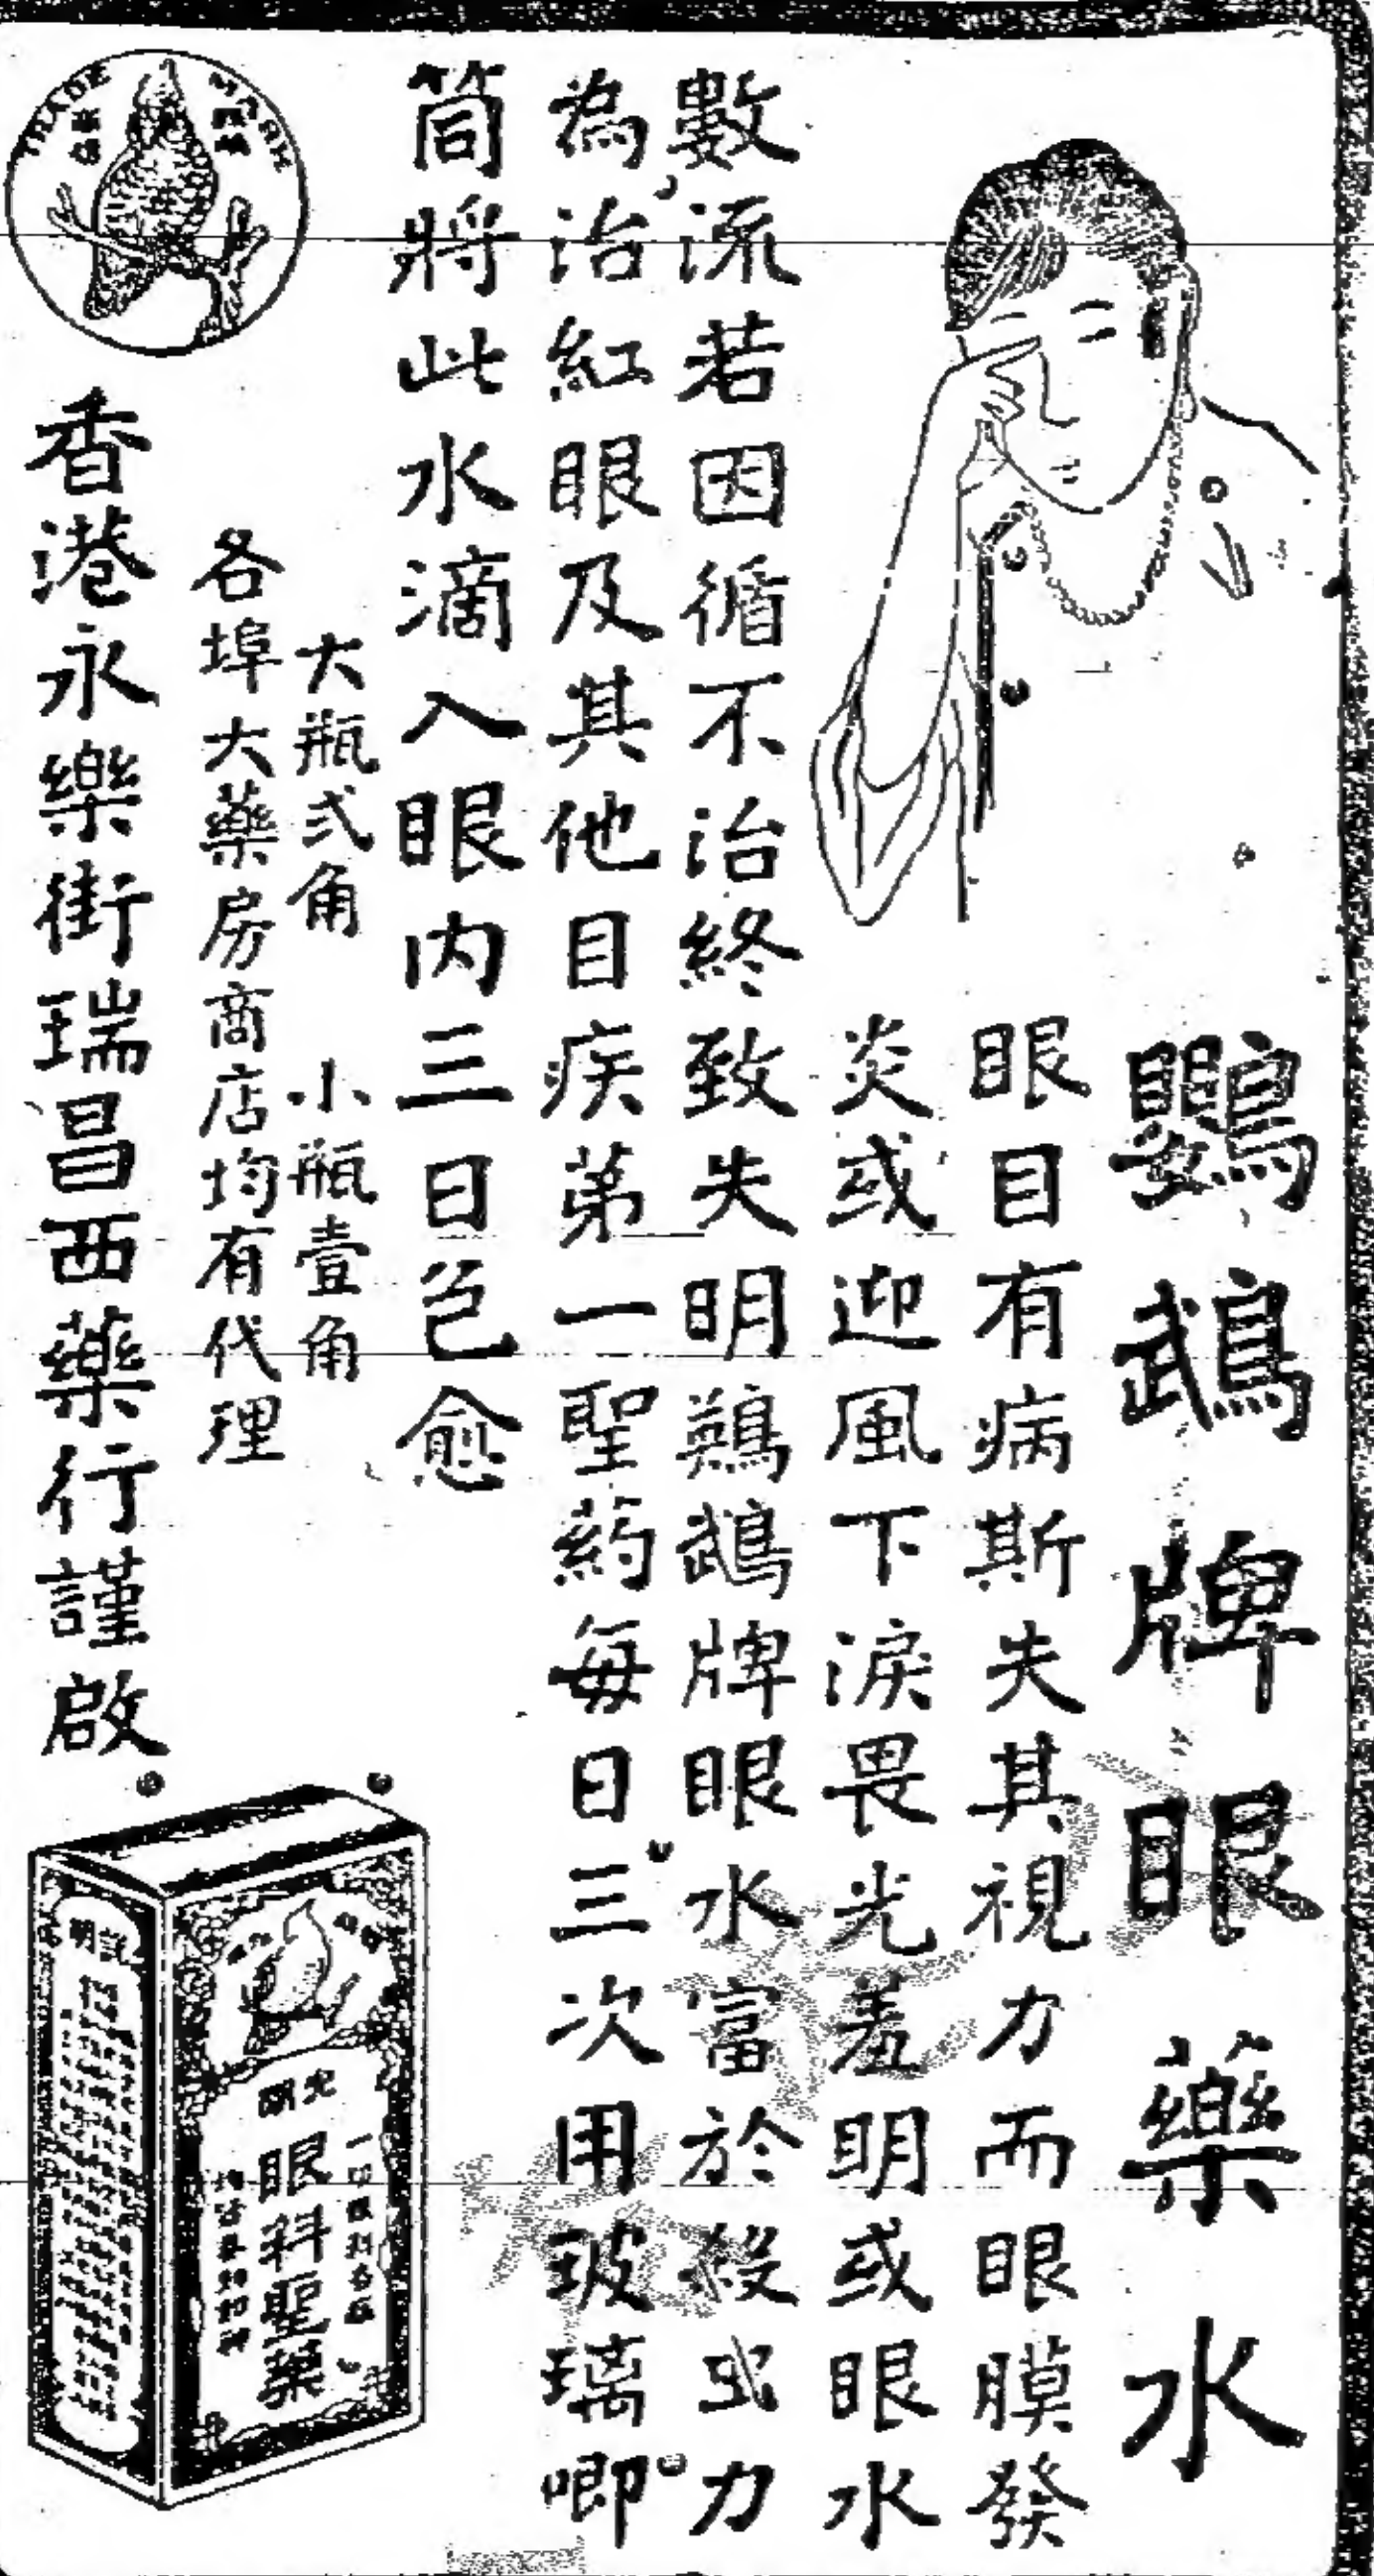 鸚鵡牌眼藥水
眼目有病斯失其視力而眼膜發
炎或迎風下淚畏光羞明或眼水
數流若因循不治終致失明鸚鵡牌眼水富於殺虫力
為治紅眼及其他目疾第一聖药每日三次用玻璃唧
筒將此水滴入眼內三日包愈
大瓶弍角 小瓶壹角
各埠大藥房商店均有代理
香港永樂街瑞昌西藥行謹啟
TRADE MARK
說明
光明
眼科聖藥